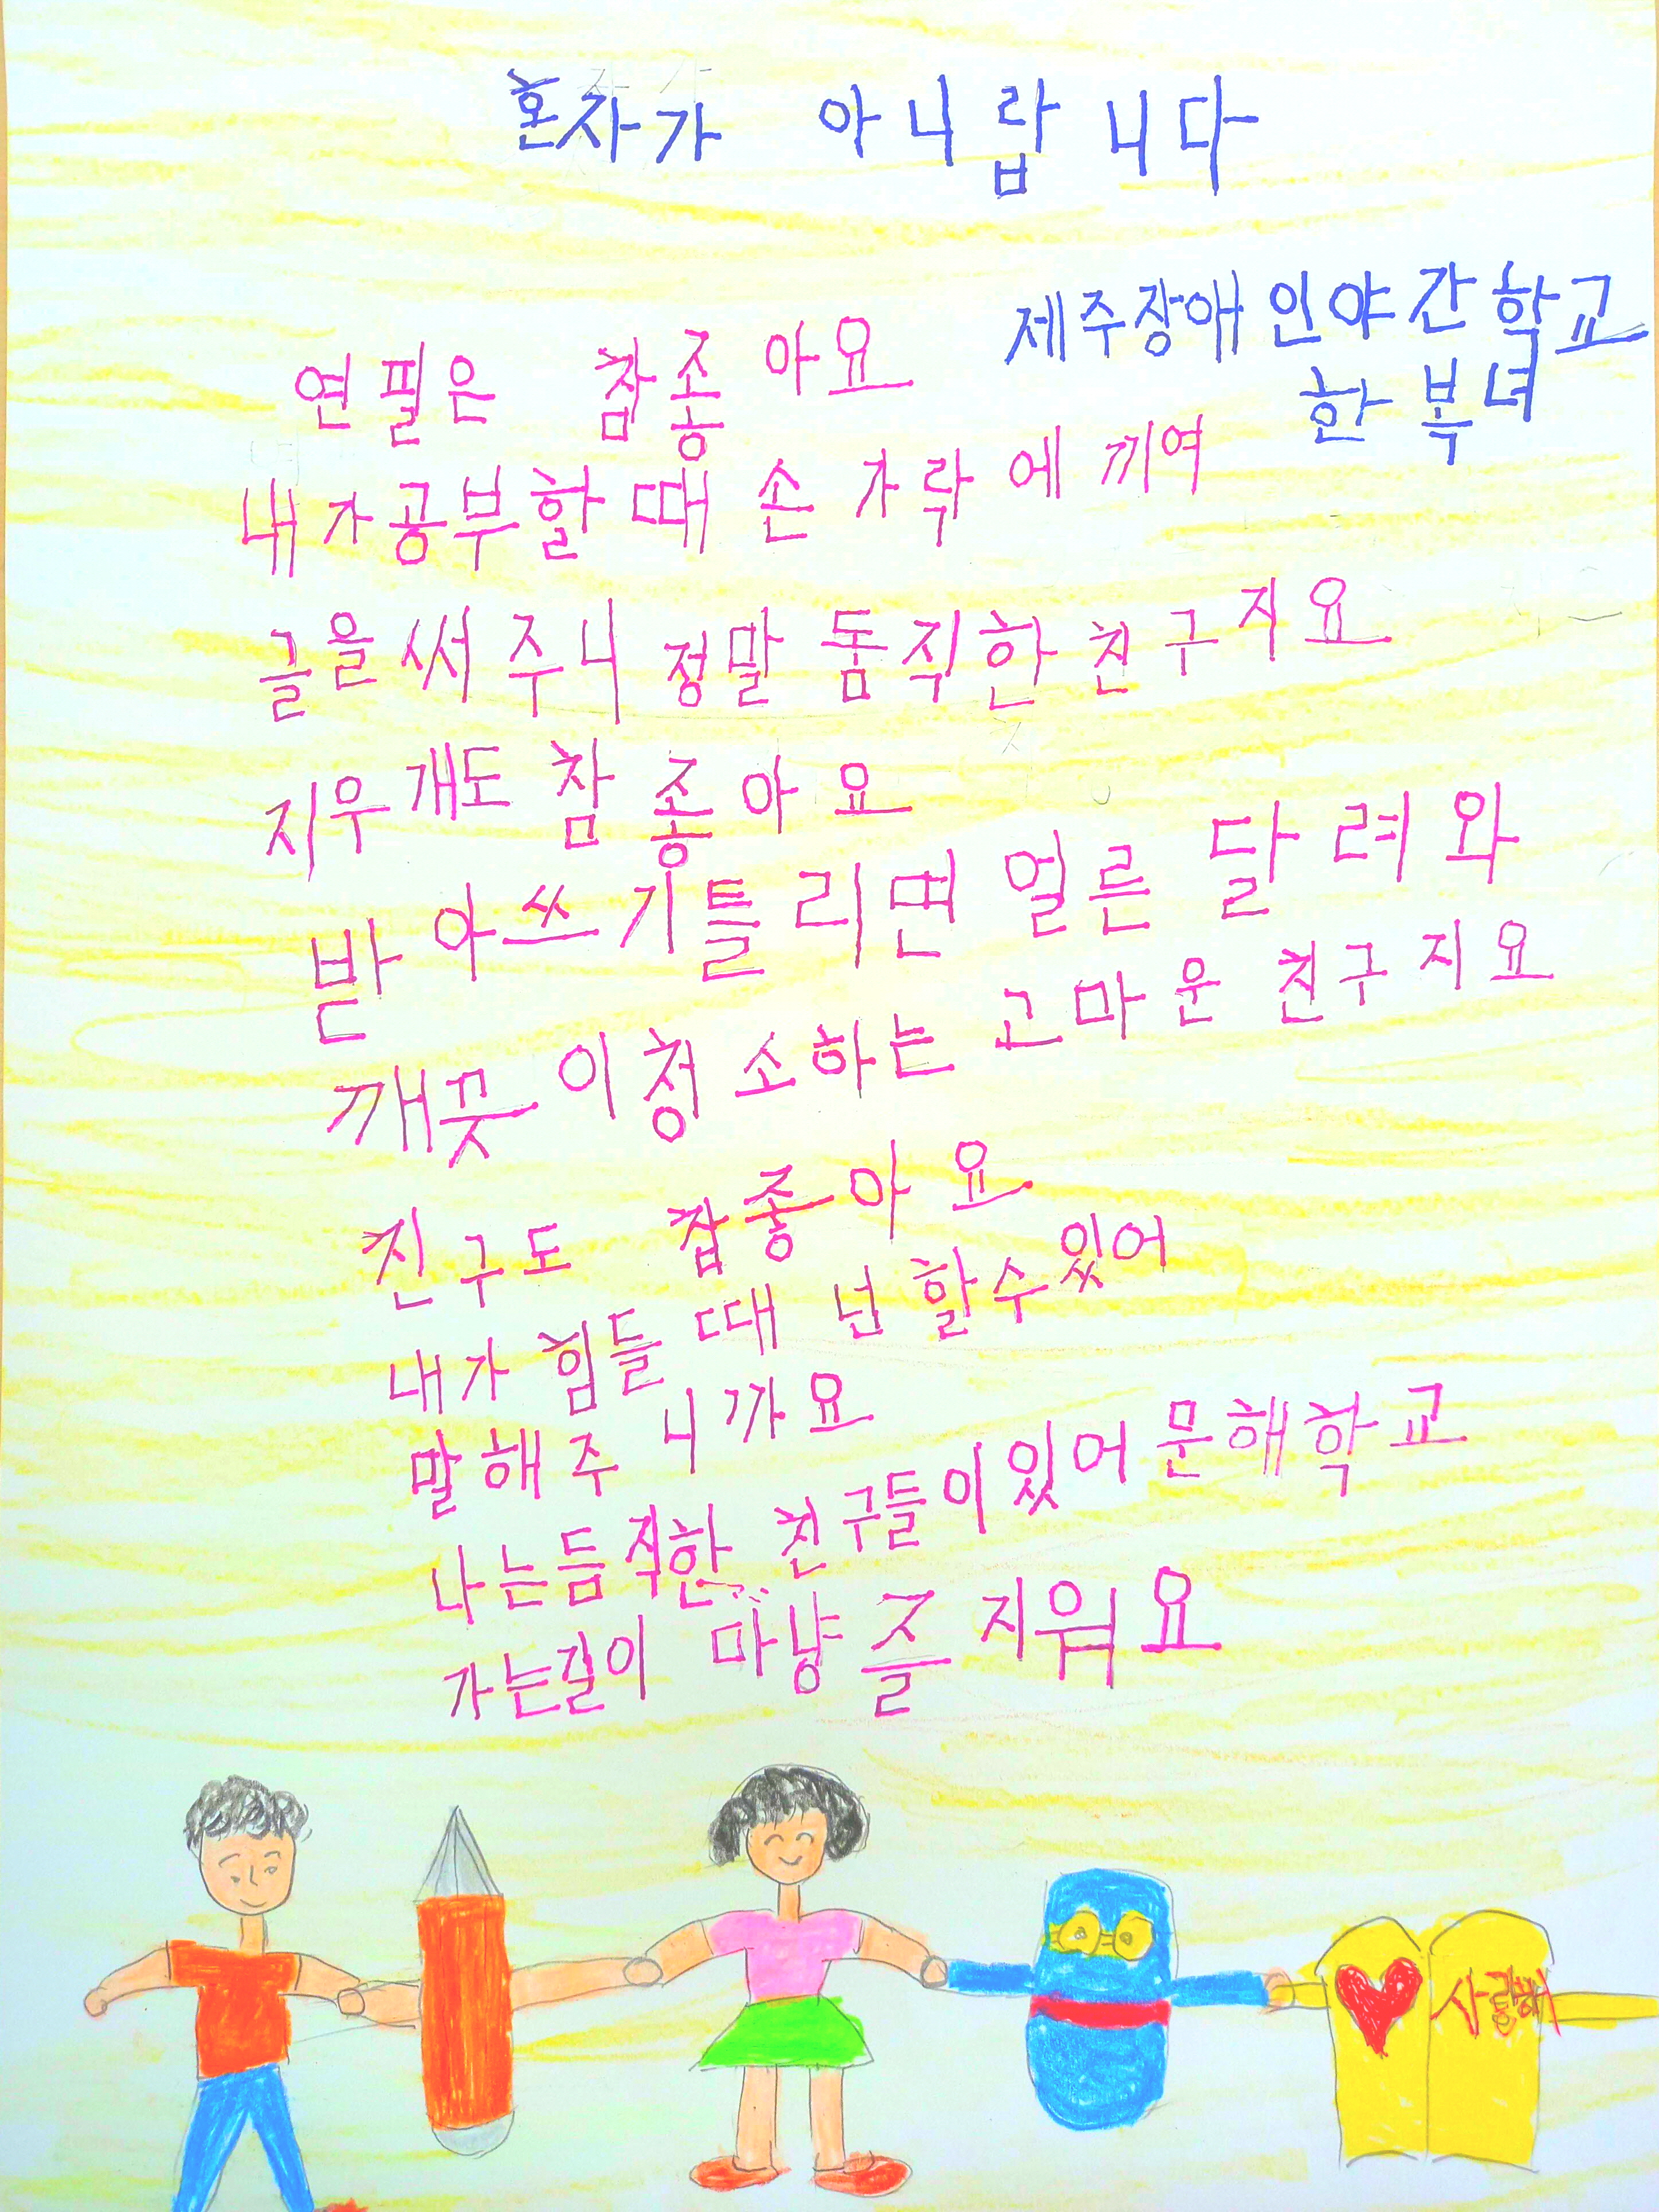 혼자가 아니랍니다
제주장애인야간학교
한복녀
연필은 참좋아요
내가공부할때 손가락에 끼여
글을써주니 정말 듬직한 친구지요
지우개도 참 좋아요
받아쓰기틀리면 얼른 달려와
깨끗이청소하는 고마운 친구지요
친구도 참좋아요
내가 힘들때 넌 할수있어
말해주니까요
나는듬직한 친구들이있어 문해학교
가는길이 마냥 즐거워요
사랑해